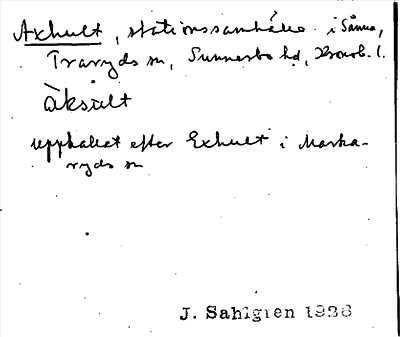 Axhult, stationssamhälle i Sånna,
Traryds sn, Sunnerbo hd, Kronob. l.
àksult
uppkallat efter Exhult i Marka-
ryds sn
J. Sahlgren 1928